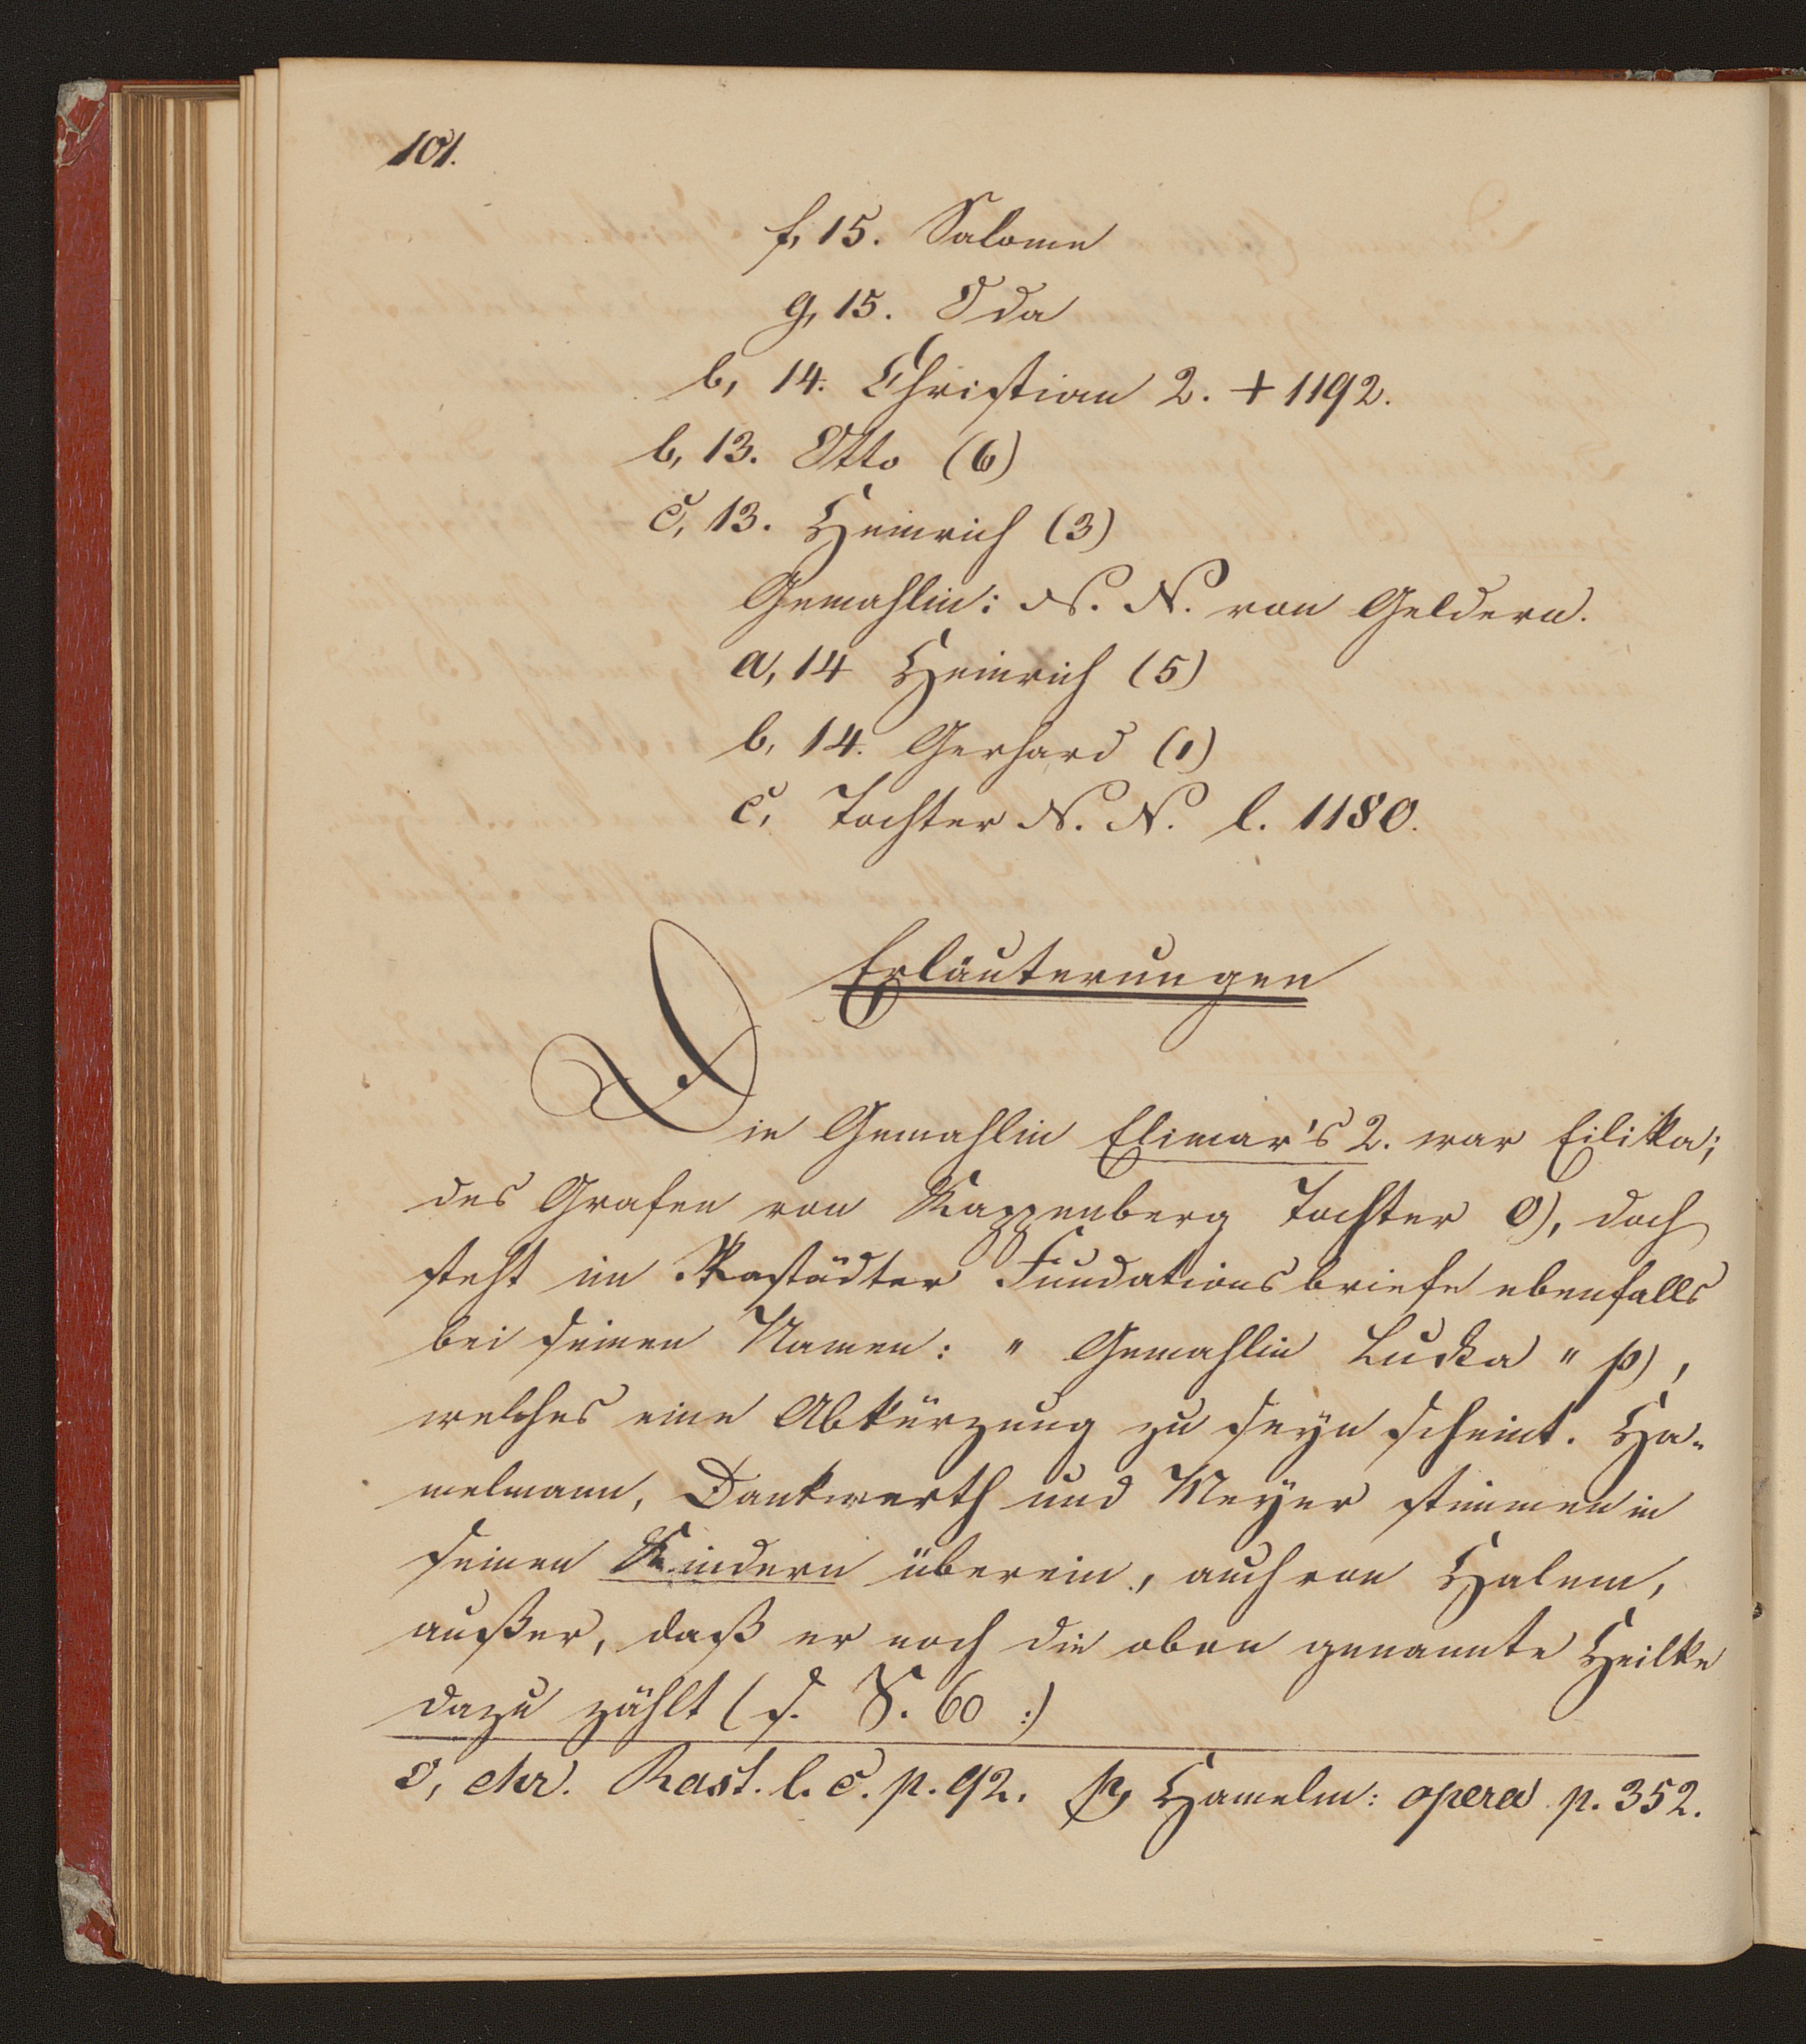 101.
f, 15. Salome
g, 15. Oda
b, 14. Christian 2. + 1192.
b, 13. Otto (6)
c, 13. Heinrich (3)
Gemahlin: N. N. von Geldern.
a, 14 Heinrich (5)
b, 14. Gerhard (1)
c, Tochter N. N. l. 1180.
Erläuterungen
Die Gemahlin Elimar's 2. war Eilika;
des Grafen von Kappenberg Tochter o), doch
steht im Rastädter Fundationsbriefe ebenfalls
bei seinen Namen: " Gemahlin Lucka " p),
welches eine Abkürzung zu seyn scheint. Ha-
melmann, Dankwerth und Meyer stimmen in
seinen Kindern überein, auch von Halem,
außer, daß er noch die oben genannte Heilke
dazu zählt (s. S. 60 :)
o, chr. Rast. l. c. p. 92. p, Hamelm: opera p. 352.